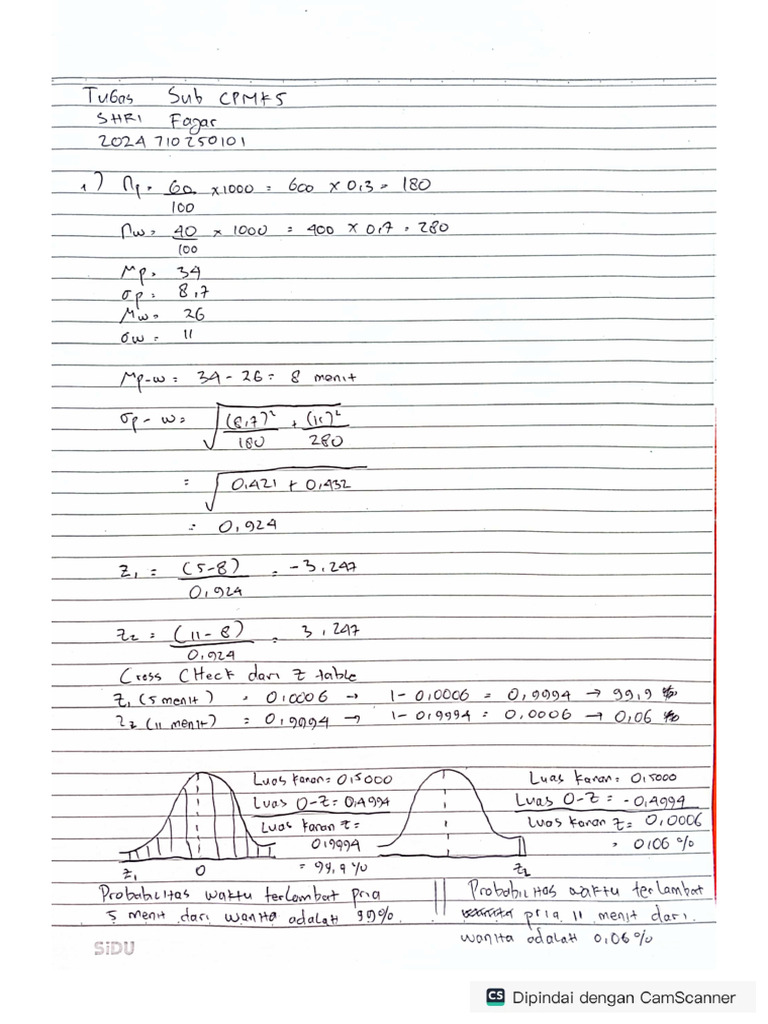 Tugas Sub CPMK5
SHRI Fagar
2024 710250101
1) np = 60/100 x 1000 = 600 x 0,3 = 180
nw = 40/100 x 1000 = 400 x 0,7 = 280
μp = 34
σp = 8,7
μw = 26
σw = 11
μp-w = 34 - 26 = 8 menit
σp - w = √((8,7)²/180 + (11)²/280)
= √(0,421 + 0,432)
= 0,924
z₁ = (5-8)/0,924 = -3,247
z₂ = (11-8)/0,924 = 3,247
Cross CHeck dari z table
z₁ (5 menit) = 0,0006 → 1-0,0006 = 0,9994 → 99,9 %
z₂ (11 menit) = 0,9994 → 1-0,9994 = 0,0006 → 0,06 %
Luas kanan = 0,5000
Luas 0-z = 0,4994
Luas kanan z =
0,9994
= 99,9 %
z₁ 0
Luas kanan = 0,5000
Luas 0-z = -0,4994
Luas kanan z = 0,0006
= 0,06 %
z₂
Probabilitas waktu terlambat pria
5 menit dari wanita adalah 99%.
Probabilitas waktu terlambat
pria 11 menit dari
wanita adalah 0,06 %
SiDU
CS Dipindai dengan CamScanner